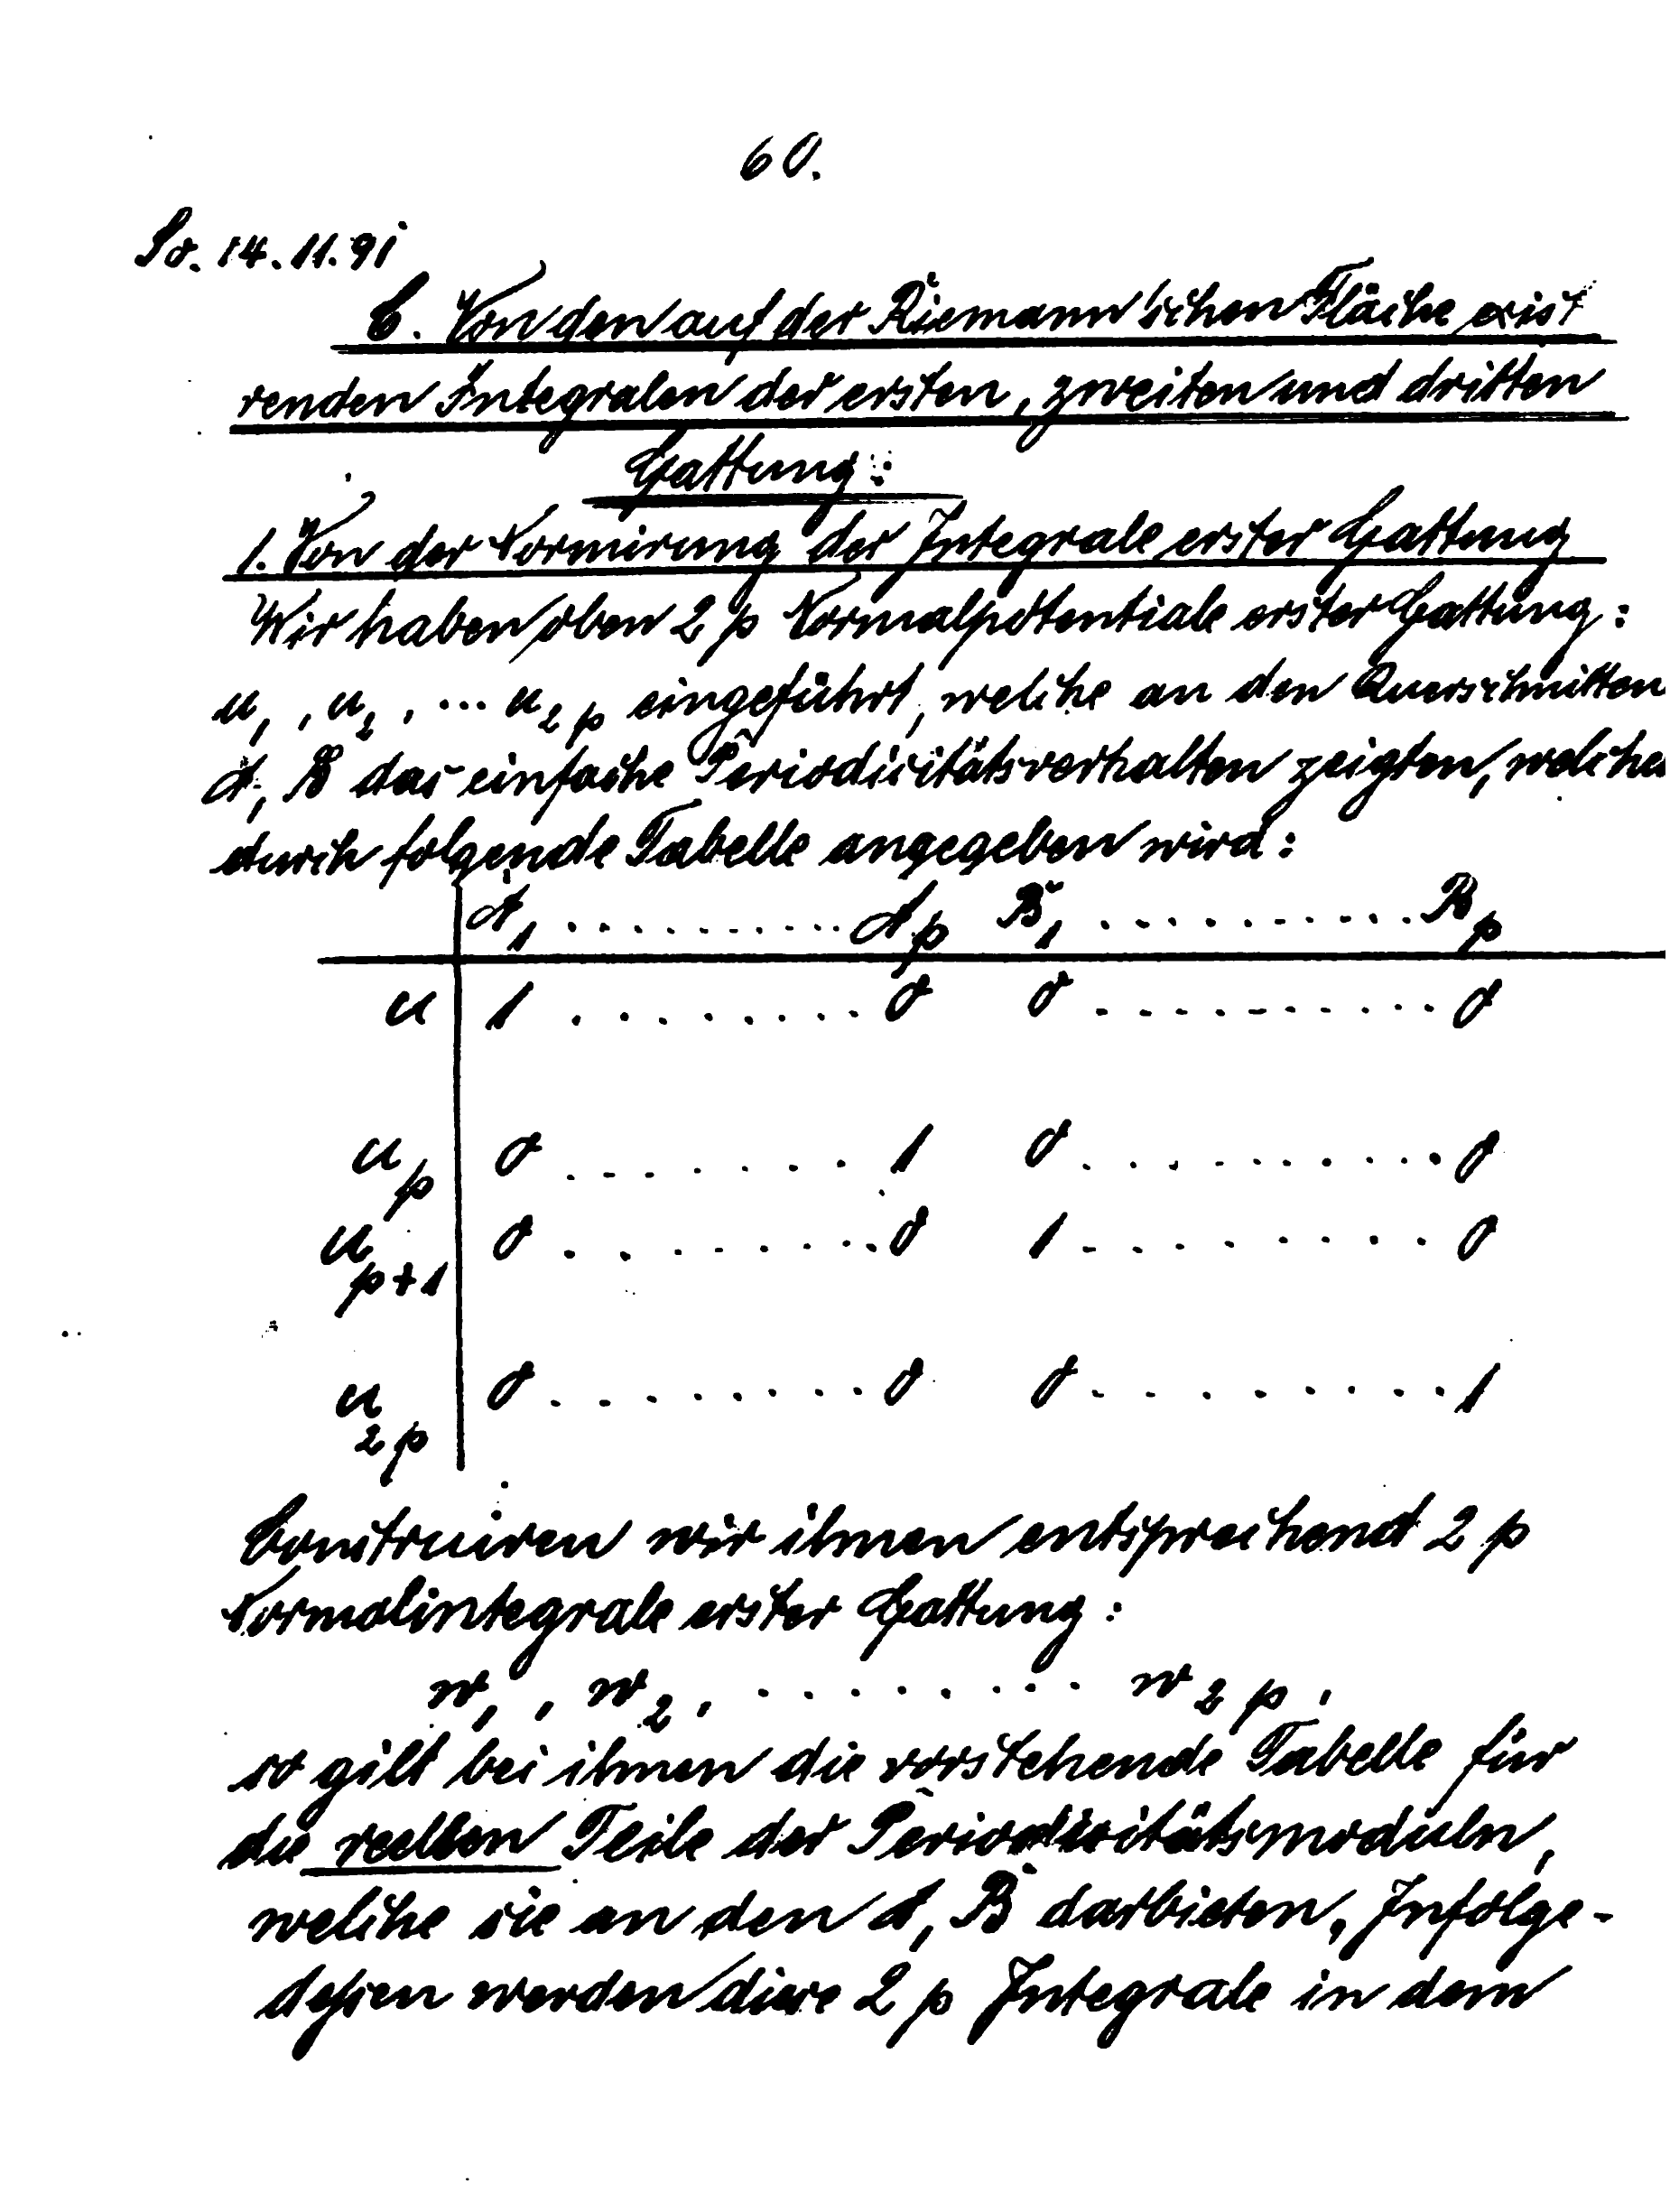 60.
So. 14.11.91
C. Von den auf der Riemann'schen Fläche exist
renden Integralen der ersten, zweiten und dritten
Gattung:
1. Von der Normirung der Integrale erster Gattung
Wir haben oben 2p Normalpotentiale erster Gattung:
u₁, u₂, ... u₂ₚ eingeführt, welche an den Querschnitten
A, B das einfache Periodicitätsverhalten zeigten, welches
durch folgende Tabelle angegeben wird:
A₁ .......... Aₚ B₁ .......... Bₚ
u 1 ........ 0 0 .......... 0
uₚ 0 ....... 1 0 .......... 0
uₚ₊₁ 0 ........ 0 1 ......... 0
u₂ₚ 0 ........ 0 0 ......... 1
Construiren wir ihnen entsprechend 2p
Normalintegrale erster Gattung:
w₁, w₂, ........ w₂ₚ,
so gilt bei ihnen die vorstehende Tabelle für
die reellen Teile der Periodicitätsmoduln,
welche sie an den A, B darbieten. Infolge-
dessen werden diese 2p Integrale in dem